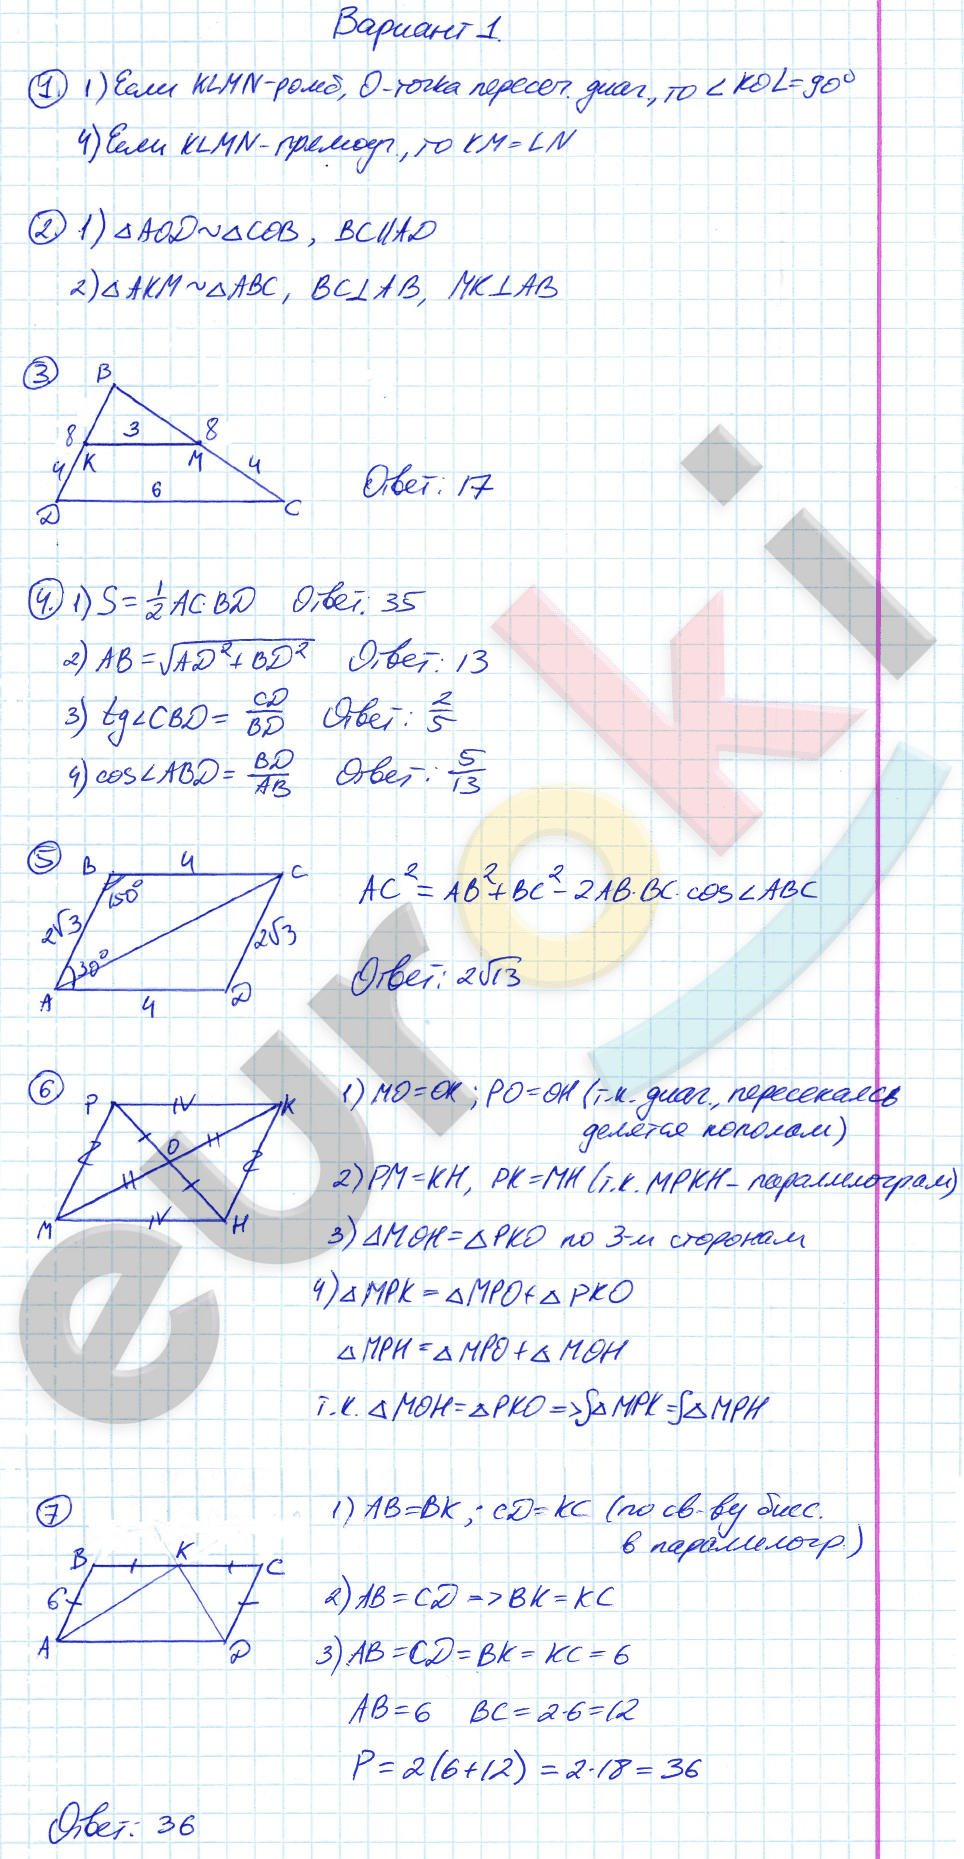 Вариант 1.
1) 1) Если KLMN-ромб, O-точка пересеч. диаг., то ∠KOL=90°
4) Если KLMN-прямоуг., то KM=LN
2) 1) △AOD~△COB, BC∥AD
2) △AKM~△ABC, BC⊥AB, MK⊥AB
3)
B
8 3 8
4 K M 4
6
D C
Ответ: 17
4. 1) S=1/2 AC·BD Ответ: 35
2) AB=√(AD²+BD²) Ответ: 13
3) tg∠CBD=CD/BD Ответ: 2/5
4) cos∠ABD=BD/AB Ответ: 5/13
5)
B 4 C
150°
2√3 2√3
30°
A D
4
AC²=AB²+BC²-2AB·BC·cos∠ABC
Ответ: 2√13
6)
P K
O
M H
1) MO=OK; PO=OH (т.к. диаг., пересекаясь
делятся пополам)
2) PM=KH, PK=MH (т.к. MPKH-параллелограм)
3) △MOH=△PKO по 3-м сторонам
4) △MPK=△MPO+△PKO
△MPH=△MPO+△MOH
т.к. △MOH=△PKO=>S△MPK=S△MPH
7)
B K C
6
A D
1) AB=BK; CD=KC (по св-ву бисс.
в параллелогр.)
2) AB=CD=>BK=KC
3) AB=CD=BK=KC=6
AB=6 BC=2·6=12
P=2(6+12)=2·18=36
Ответ: 36
euroki